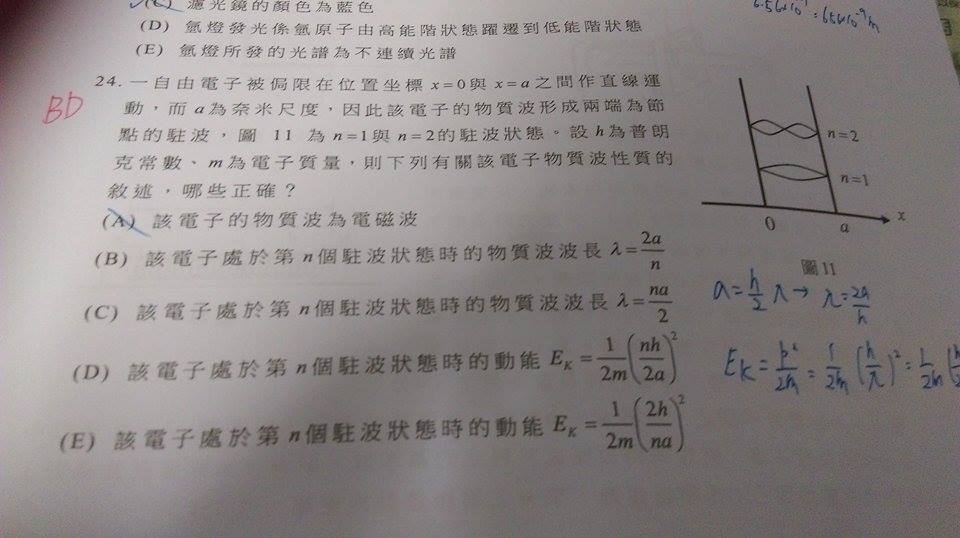 濾光鏡的顏色為藍色
(D) 氫燈發光係氫原子由高能階狀態躍遷到低能階狀態
(E) 氫燈所發的光譜為不連續光譜
24. 一自由電子被侷限在位置坐標 x=0 與 x=a 之間作直線運
動,而 a 為奈米尺度,因此該電子的物質波形成兩端為節
點的駐波,圖 11 為 n=1 與 n=2 的駐波狀態。設 h 為普朗
克常數、m 為電子質量,則下列有關該電子物質波性質的
敘述,哪些正確?
(A) 該電子的物質波為電磁波
(B) 該電子處於第 n 個駐波狀態時的物質波波長 λ=2a/n
(C) 該電子處於第 n 個駐波狀態時的物質波波長 λ=na/2
(D) 該電子處於第 n 個駐波狀態時的動能 E_K=1/2m(nh/2a)²
(E) 該電子處於第 n 個駐波狀態時的動能 E_K=1/2m(2h/na)²
BD
n=2
n=1
0 a x
圖 11
a=n/2 λ → λ=2a/n
E_K=p²/2m=1/2m(h/λ)²=1/2m